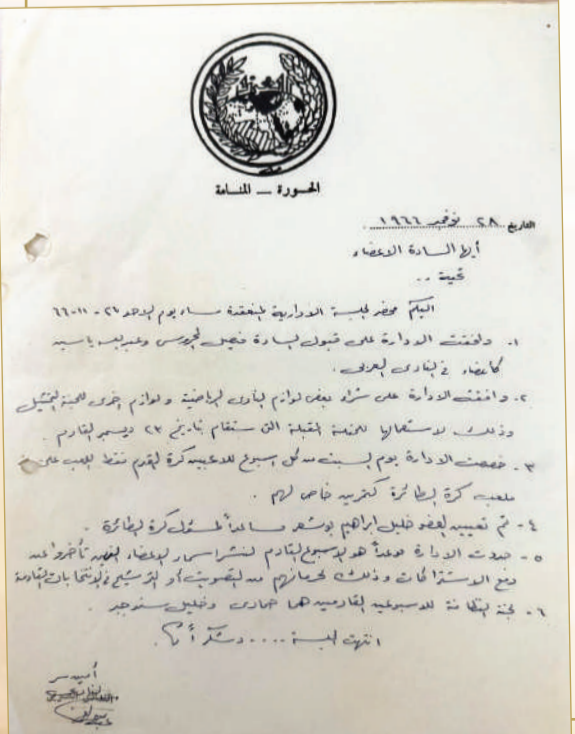 الحورة — المنامة
التاريخ ٢٨ نوفمبر ١٩٦٦
أيها السادة الاعضاء
تحية ..
اليكم محضر الجلسة الادارية المنعقدة مساء يوم الاحد ٢٧-١١-٦٦
١- وافقت الادارة على قبول السادة فيصل المحروس وعبدالله ياسين
كأعضاء في النادي العربي.
٢- وافقت الادارة على شراء بعض لوازم النادي الرياضية ولوازم اخرى للجنة التمثيل
وذلك لاستعمالها للحفلة المقبلة التي ستقام بتاريخ ٢٣ ديسمبر القادم.
٣- خصصت الادارة يوم السبت من كل اسبوع للاعبين كرة القدم فقط للعب على
ملعب كرة الطائرة كتمرين خاص لهم.
٤- تم تعيين العضو خليل ابراهيم بوشهر مساعداً لمسئول كرة الطائرة.
٥- حددت الادارة موعداً هو الاسبوع القادم لنشر اسماء الاعضاء الذين تأخروا عن
دفع الاشتراكات وذلك لحرمانهم من التصويت أو الترشيح في الانتخابات القادمة
٦- لجنة النظافة للاسبوعين القادمين هما حمادى وخليل
انتهت الجلسة .... وشكراً
أمين سر